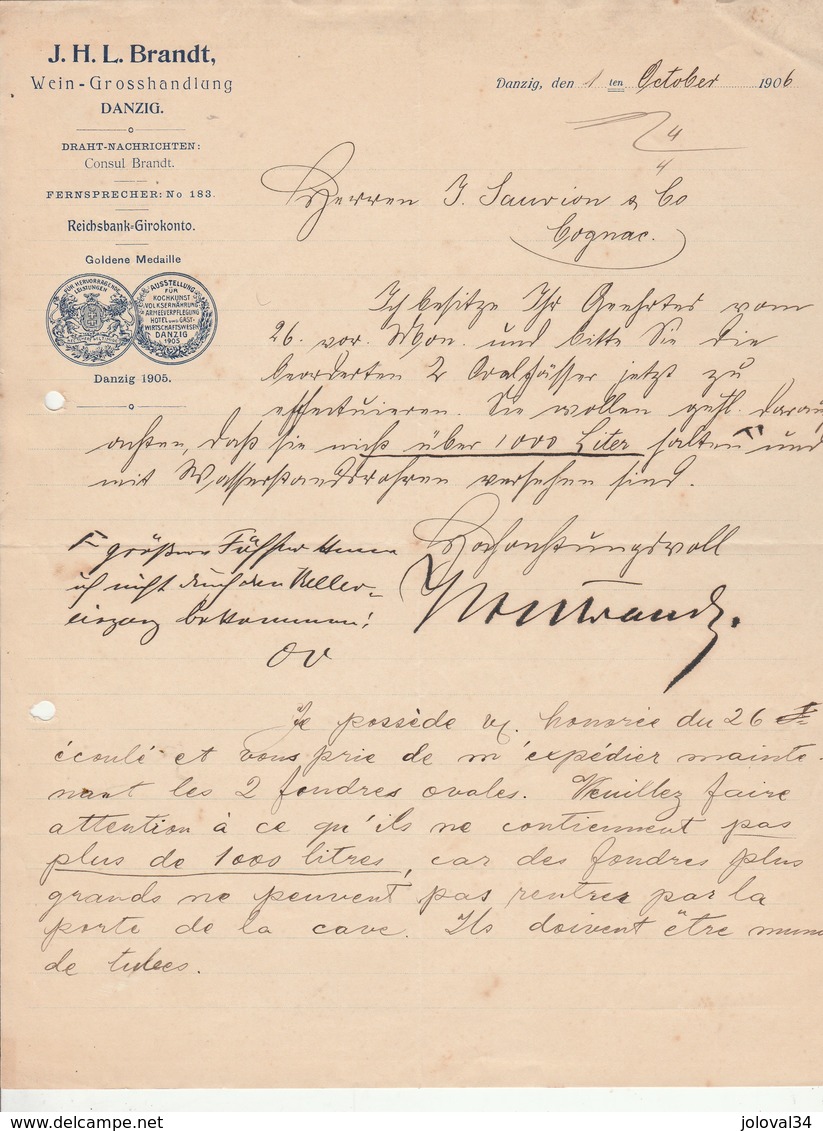 J. H. L. Brandt,
Wein-Grosshandlung
DANZIG.
DRAHT-NACHRICHTEN:
Consul Brandt.
FERNSPRECHER: No 183.
Reichsbank-Girokonto.
Goldene Medaille
FÜR HERVORRAGENDE
LEISTUNGEN
AUSSTELLUNG
FÜR
KOCHKUNST
VOLKSERNÄHRUNG
ARMEEVERPFLEGUNG
HOTEL UND GAST-
WIRTSCHAFTSWESEN
DANZIG
1905
Danzig 1905.
Danzig, den 1 ten October 1906
4
Herren J. Sauvion & Co
Cognac.
Ich besitze Ihr Geehrtes vom
26. vor. Mon. und bitte Sie die
beorderten 2 Ovalfässer jetzt zu
effectuieren. Sie wollen gefl. darau
achten, daß sie nicht über 1000 Liter halten und
mit Wasserstandsrohren versehen sind.
Hochachtungsvoll
größere Fässer kann
ich nicht durch den Keller-
eingang bekommen!
Je possède vx. honorée du 26
écoulé et vous prie de m'expédier mainte-
nant les 2 foudres ovales. Veuillez faire
attention à ce qu'ils ne contiennent pas
plus de 1000 litres, car des foudres plus
grands ne peuvent pas rentrer par la
porte de la cave. Ils doivent être muni
de tubes.
joloval34